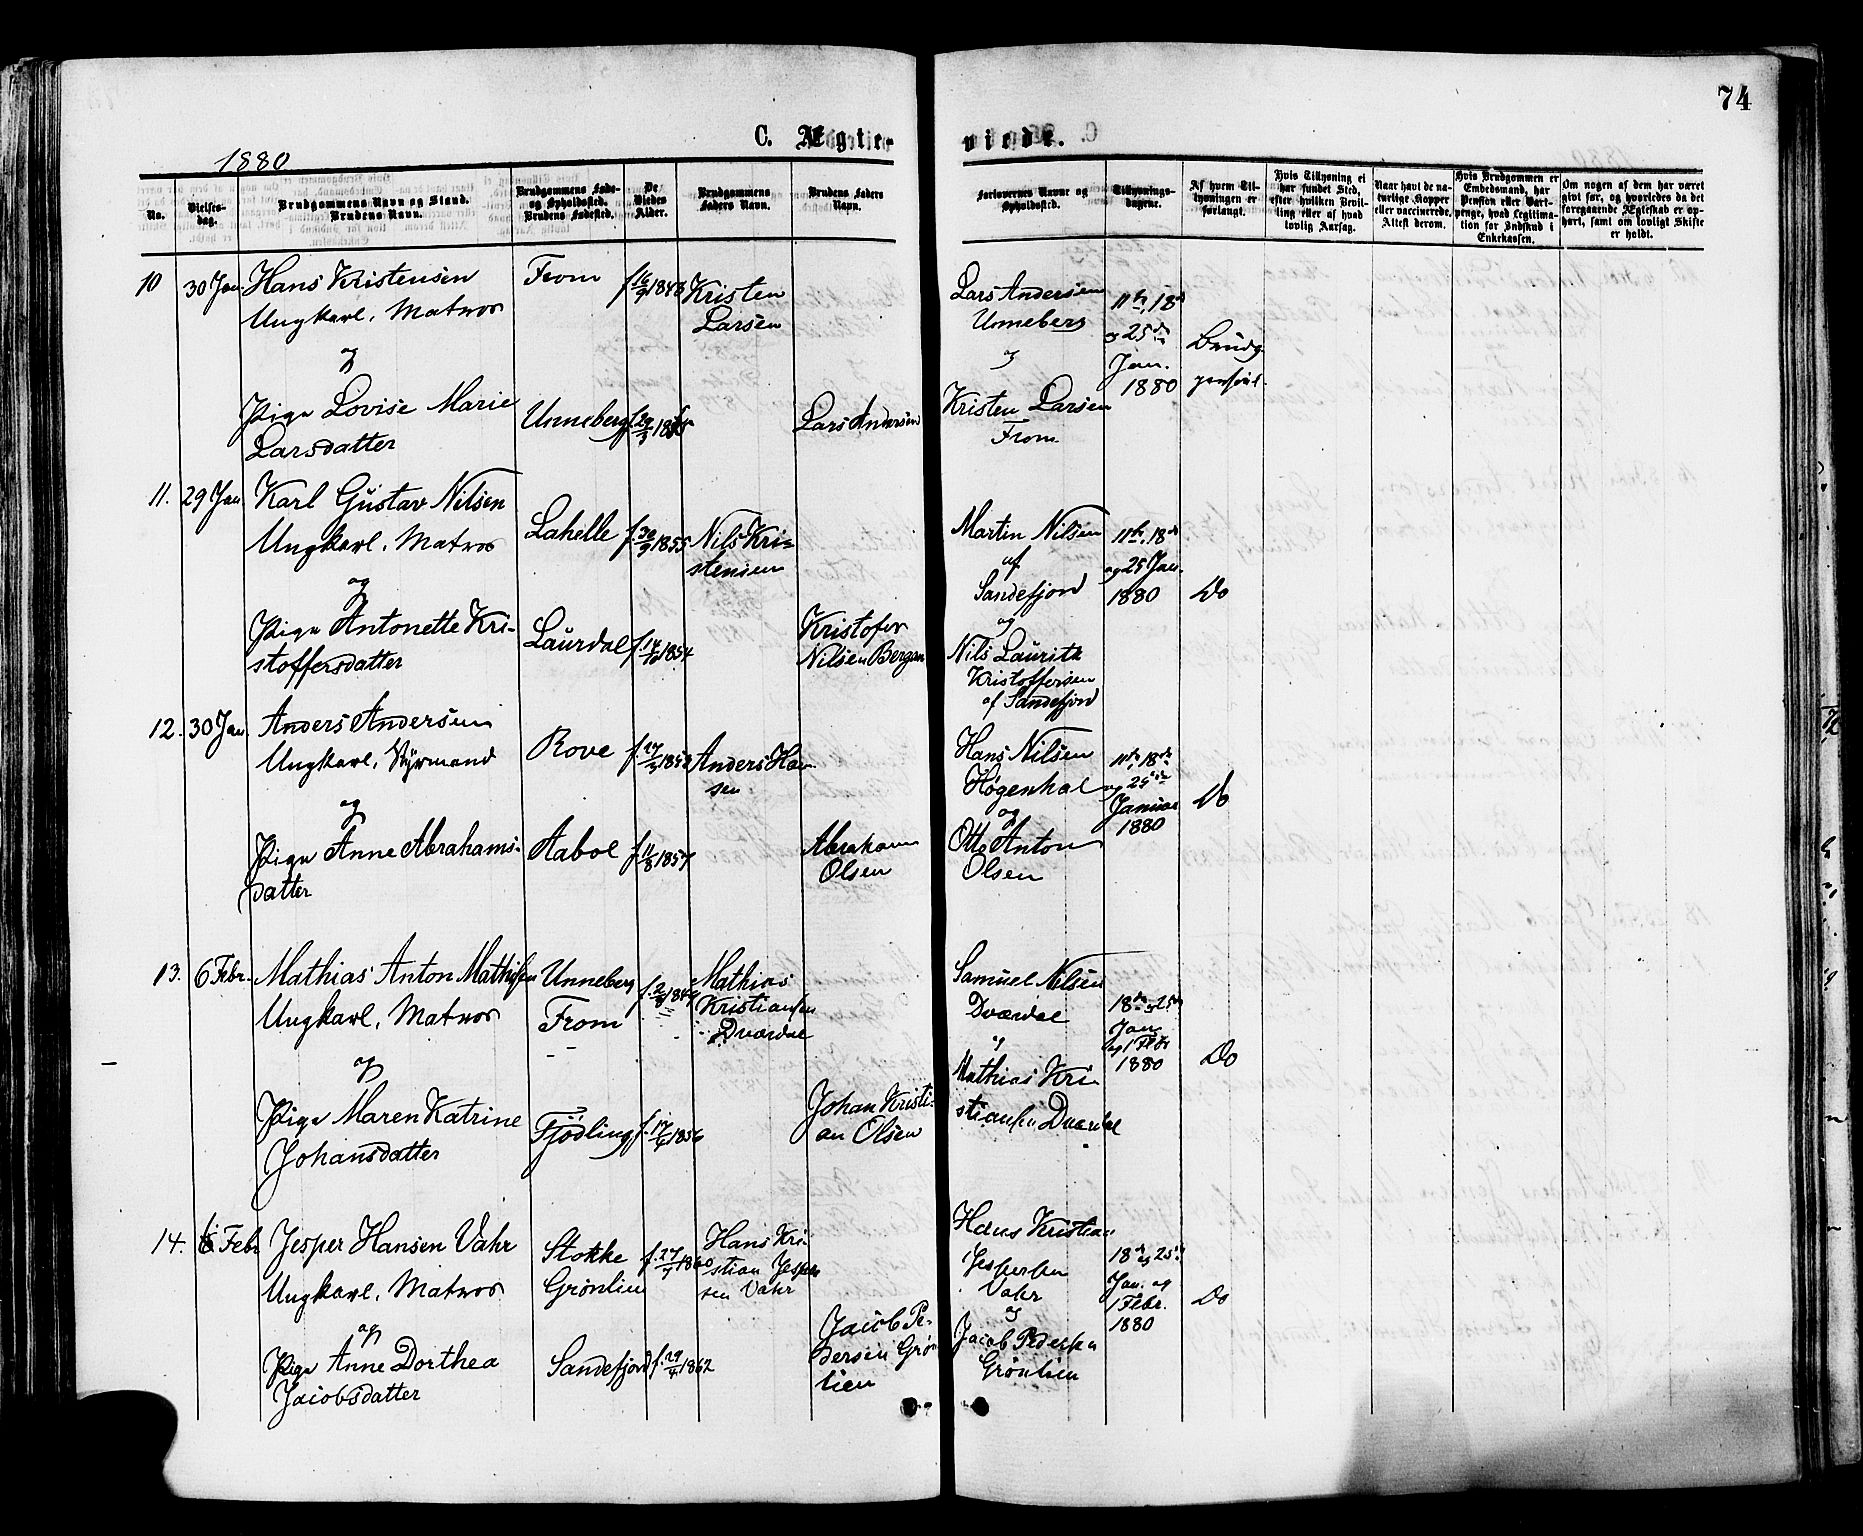 74
C. Ægte-
viede.
1880
No.
Vielses-
dag.
Brudgommens Navn og Stand.
Brudens Navn.
Brudgommens Føde-
og Opholdssted.
Brudens Fødested.
De
Viedes
Alder.
Brudgommens
Faders Navn.
Brudens Faders
Navn.
Forlovernes Navne og
Opholdssted.
Tillysnings-
dagene.
Af hvem Til-
lysningen er
forlangt.
Hvis Tillysning ei
har fundet Sted,
efter hvilken Bevil-
ling eller af hvad
lovlig Aarsag.
Naar havt de na-
turlige Kopper
eller vaccinerede.
Attest derom.
Hvis Brudgommen er
Embedsmand, har
Pension eller Vart-
penge, hvad Legitima-
tion for Indskud i
Enkekassen.
Om nogen af dem har været
gift før, og hvorledes da det
foregaaende Ægteskab er op-
hørt, samt om lovligt Skifte
er holdt.
10
30 Jan.
Hans Kristensen
Ungkarl, Matros
og
Pige Lovise Marie
Larsdatter
From
Unneberg
f. 16/9 1848
Kristen
Larsen
Lars Andersen
Lars Andersen
Unneberg
og
Kristen Larsen
From
11te, 18de
og 25de
Jan.
1880
Brudg
11.
29 Jan
Karl Gustav Nilsen
Ungkarl, Matros
og
Pige Antonette Kri-
stoffersdatter
Lahelle
Laurdal
f. 30/9 1855
f. 14/10 1854
Nils Kri-
stensen
Kristofer
Nilsen Bergan
Martin Nilsen
af
Sandefjord
og
Nils Lauritz
Kristoffersen
af Sandefjord
11te, 18de
og 25 Jan.
1880
Do
12.
30 Jan
Anders Andersen
Ungkarl, Styrmand
og
Pige Anne Abrahams-
datter
Rove
Aabol
f. 11/8 1857
Anders Han
sen
Abraham
Olsen
Hans Nilsen
Høgenhal
og
Otto Anton
Olsen
11te, 18de
og 25de
Januar
1880
Do
13.
6 Febr.
Mathias Anton Mathisen
Ungkarl, Matros
og
Pige Maren Katrine
Johansdatter
Unneberg
From
Fjødling
f. 17/6 1856
Mathias
Kristiansen
Dværdal
Johan Kristi-
an Olsen
Samuel Nilsen
Dværdal
og
Mathias Kri
stiansen Dværdal
18de og 25de
Jan.
og 1 Febr
1880
Do
14.
6 Febr
Jesper Hansen Vahr
Ungkarl, Matros
og
Pige Anne Dorthea
Jacobsdatter
Stokke
Grønlien
Sandefjord
f. 27/7 1860
f. 29/4 1862
Hans Kri-
stian Jesper
sen Vahr
Jacob Pe-
dersen Grøn
lien
Hans Kristian
Jespersen
Vahr
og
Jacob Pedersen
Grønlien
18de og 25de
Jan. og
1 Febr.
1880
Do